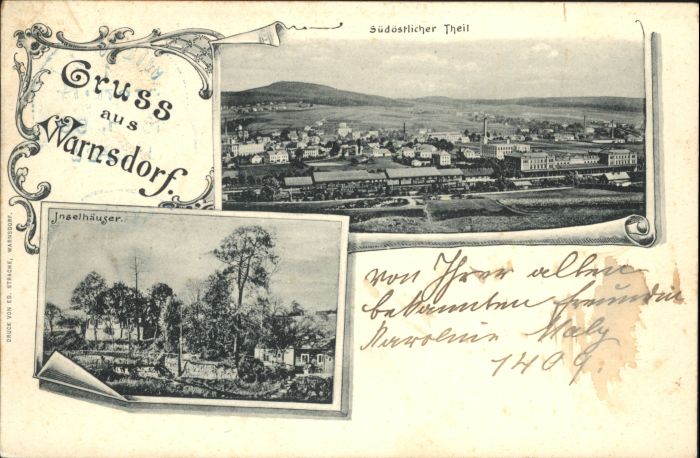 Südöstlicher Theil
Gruss
aus
Warnsdorf.
Inselhäuser.
DRUCK VON ED. STRACHE, WARNSDORF.
von Ihrer alten
bekannten Freundin
Karoline Maly
1409.